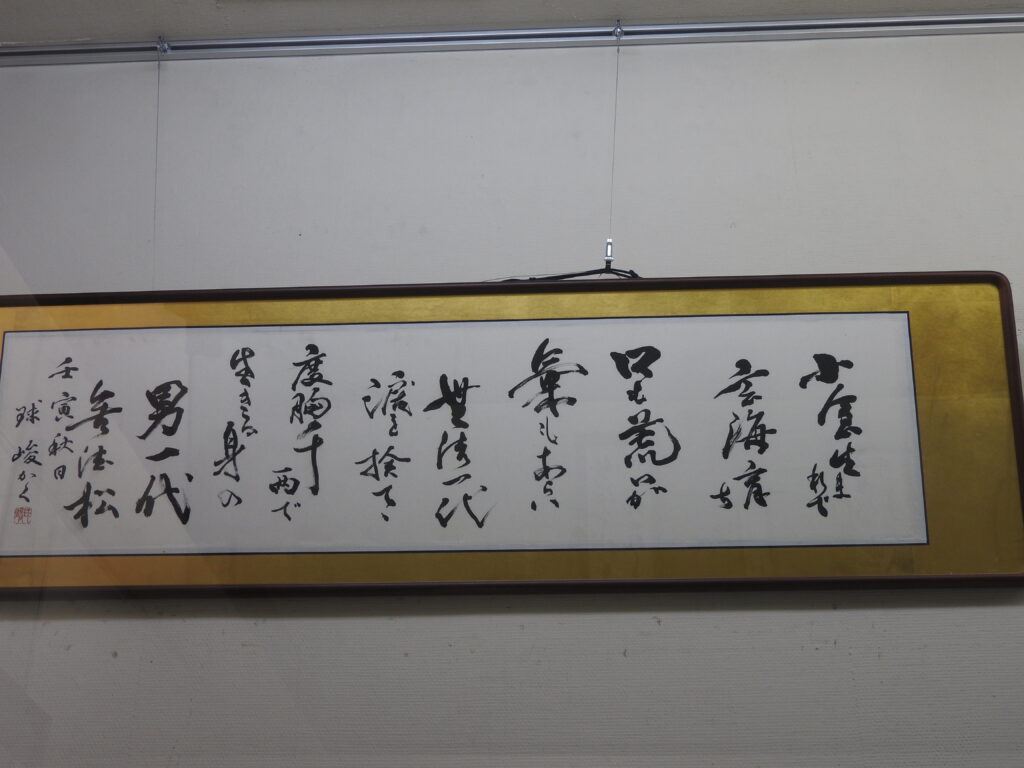 小倉生まれで
玄海育ち
口も荒いが
氣もあらい
無法一代
涙を捨てゝ
度胸千両で
生きる身の
男一代
無法松
壬寅秋日
球峻かく